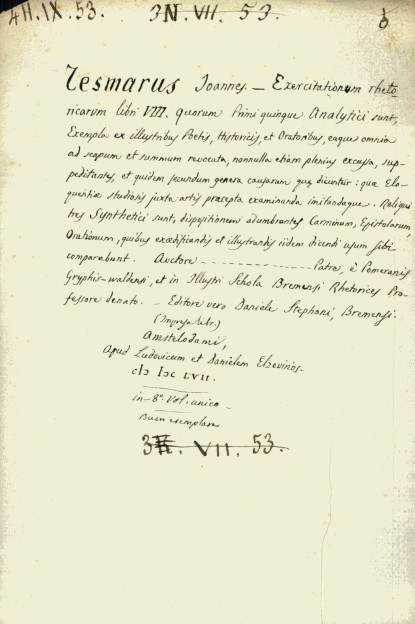 4H.IX.53. 3N.VII.53. b
Tesmarus Joannes. — Exercitationum rheto-
ricarum libri VIII. Quorum Primi quinque Analytici sunt,
Exempla ex illustribus Poetis, Historicis, et Oratoribus, eaque omnia
ad scopum et summum revocata, nonnulla etiam plenius excussa, sup-
peditantes, et quidem secundum genera causarum quæ dicuntur: quæ Elo-
quentiæ studiosis juxta artis præcepta examinanda imitandaque. Reliqui
tres Synthetici sunt, dispositionem adumbrantes Carminum, Epistolarum,
Orationum, quibus exædificandis et illustrandis iidem dicendi usum sibi
comparabunt. Auctore - - - - - - - - - - Patre, è Pomeranis
Gryphis-waldensi, et in Illustri Schola Bremensi Rhetorices Pro-
fessore denato. — Editore vero Daniele Stephani, Bremensi.
Amstelodami,
Apud Ludovicum et Danielem Elzevirios.
cIɔ Iɔc LVII.
in-8º. Vol. unico
Buen exemplar
VII. 53.